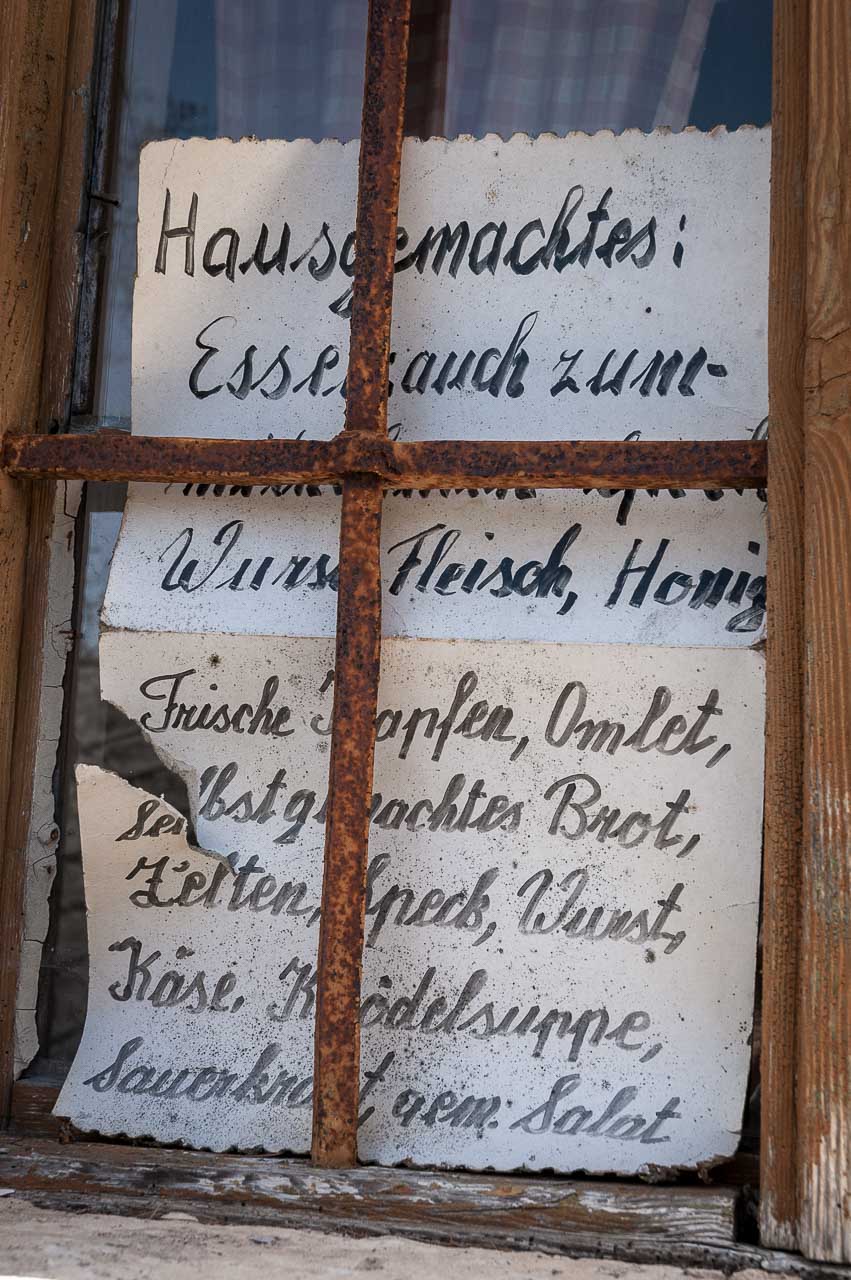 Hausgemachtes:
Essen auch zum-
Wurst, Fleisch, Honig
Frische Krapfen, Omlet,
selbstgemachtes Brot,
Zelten, Speck, Wurst,
Käse, Knödelsuppe,
Sauerkraut, gem. Salat